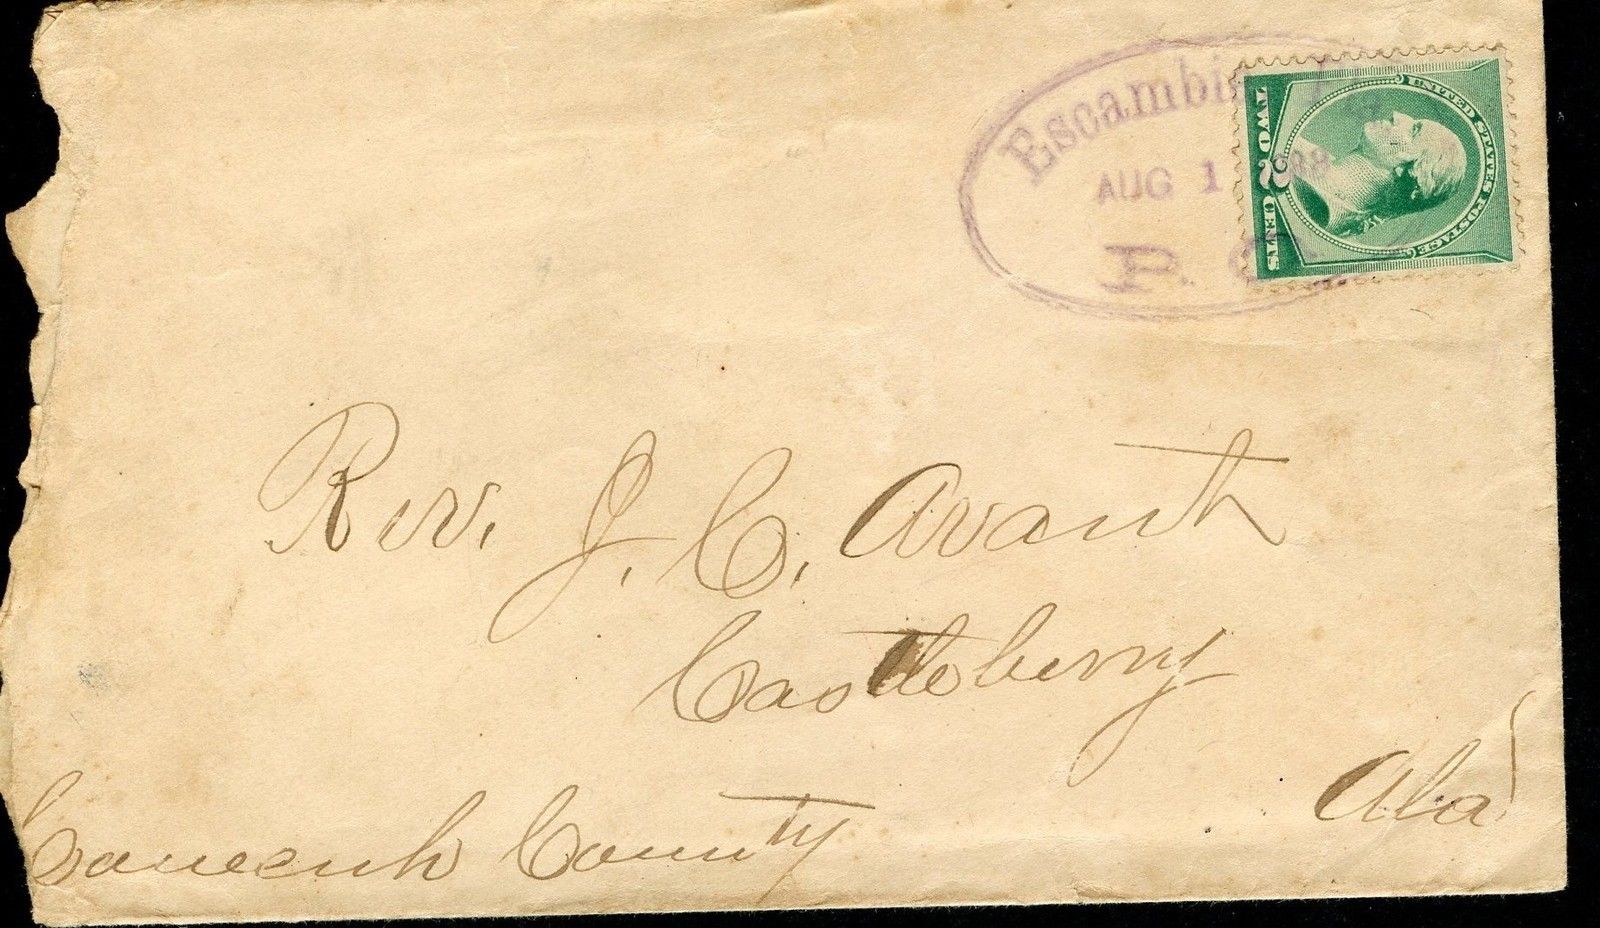 Escambia
AUG 1 1888
P. O.
UNITED STATES POSTAGE
TWO 2 CENTS
Rev. J. C. Avant
Castleberry
Ala
Conecuh County